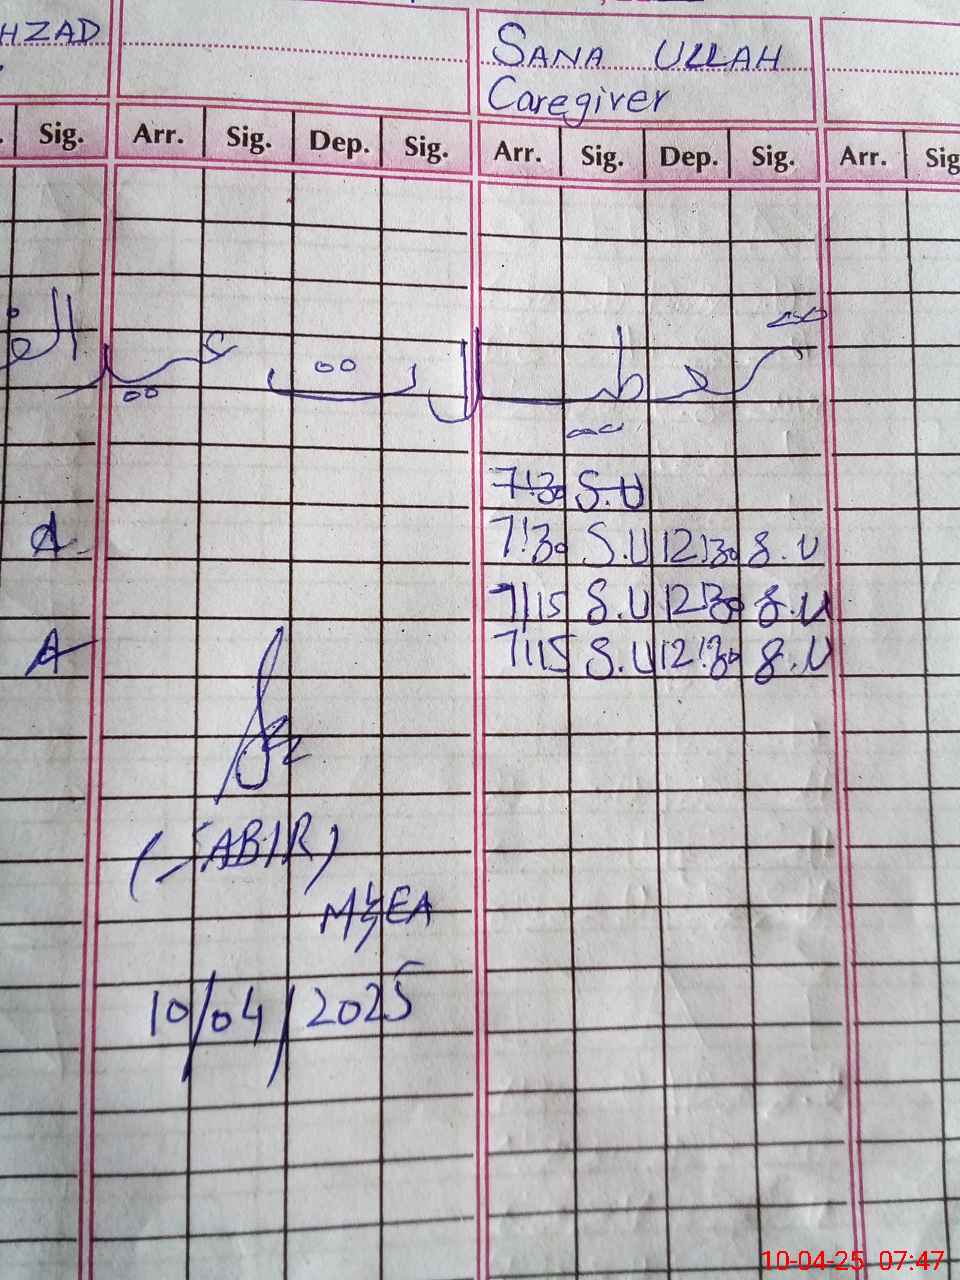 HZAD
SANA ULLAH
Caregiver
Sig. Arr. Sig. Dep. Sig. Arr. Sig. Dep. Sig. Arr. Sig
تعطیلات عید
7:30 S.U
A 7:30 S.U 12:30 S.U
7:15 S.U 12:30 S.U
A 7:15 S.U 12:30 S.U
(SABIR)
M&EA
10/04/2025
10-04-25 07:47